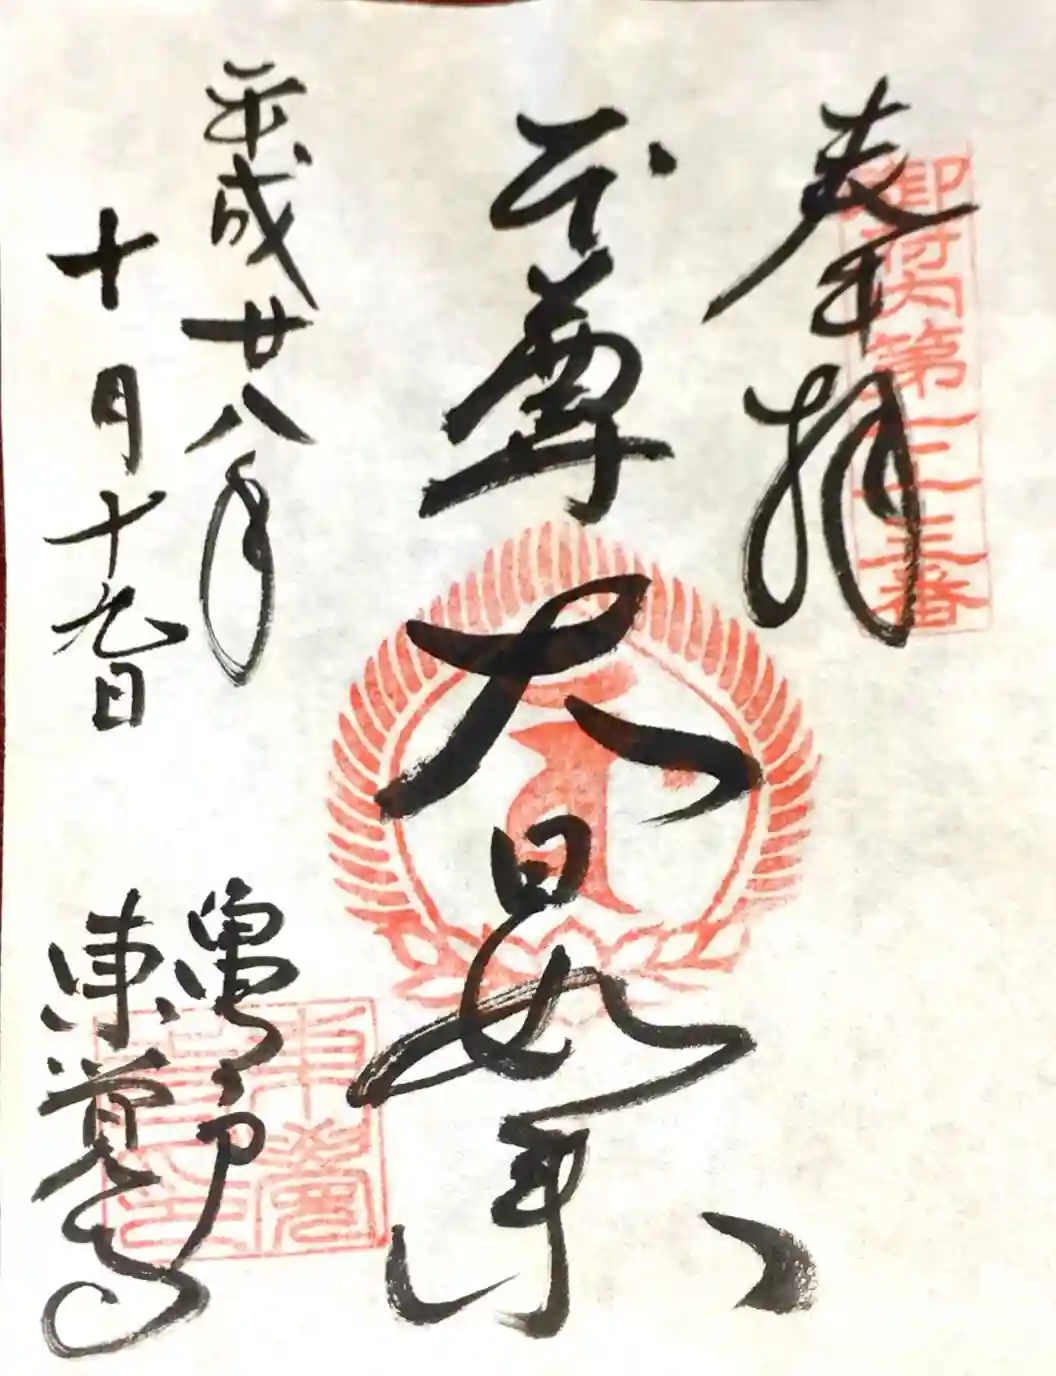 奉拝
御府内第七十三番
本尊大日如来
平成廿八年
十月十九日
亀戸
東覚寺